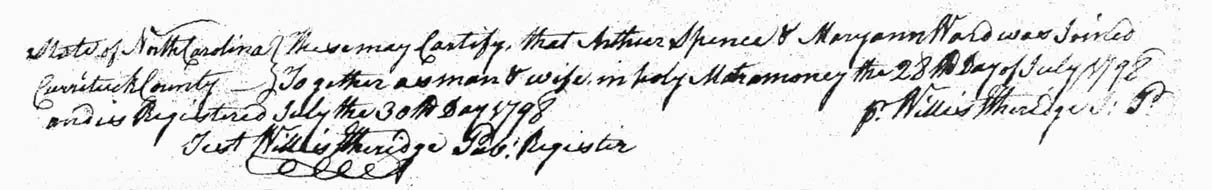 State of North Carolina } These may Certify, that Arthur Spence & Maryann Ward was Joined
Currituck County — } Together as man & wife, in holy Matramoney the 28th Day of July 1798
and is Registered July the 30th Day 1798 pr. Willis Etheridge J. P.
Test Willis Etheridge Pub. Register